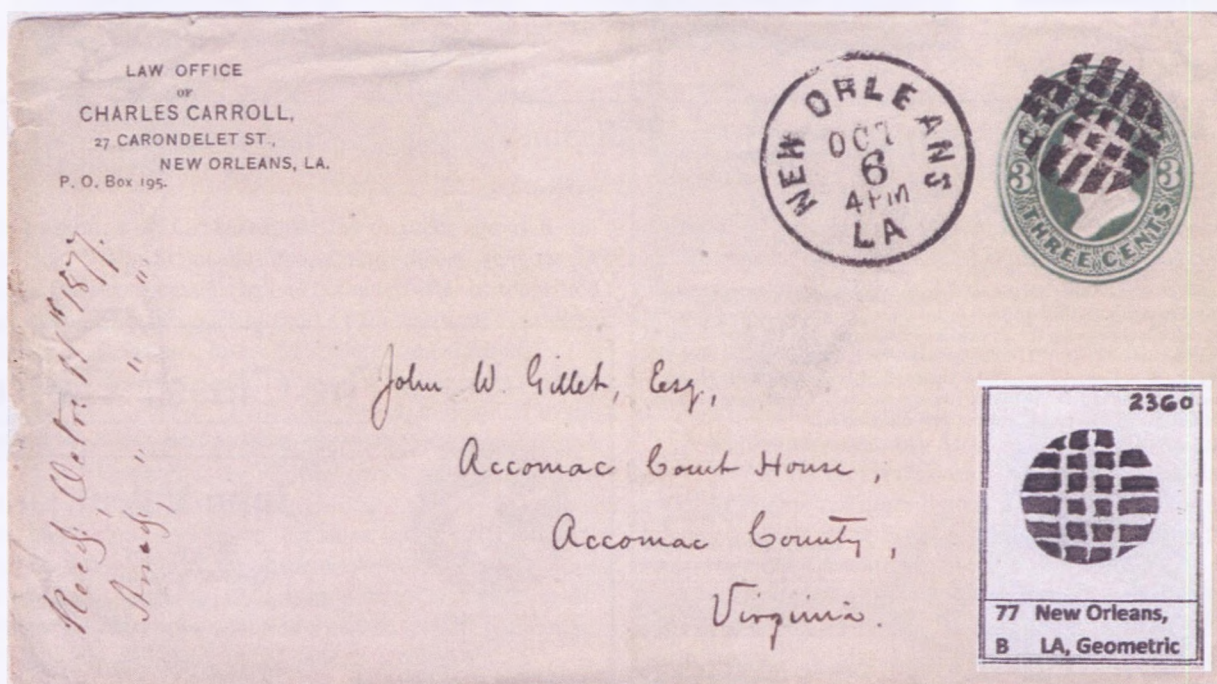 LAW OFFICE
OF
CHARLES CARROLL,
27 CARONDELET ST.,
NEW ORLEANS, LA.
P. O. Box 195.
NEW ORLEANS
OCT
6
4 PM
LA
3 3
THREE CENTS
Recd, Octo. 10th 1877.
Ansd, " " "
John W. Gillet, Esq,
Accomac Court House,
Accomac County,
Virginia.
2360
77 New Orleans,
B LA, Geometric